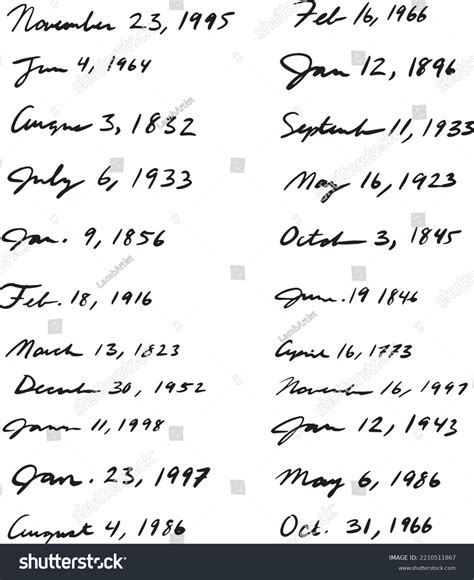 November 23, 1995
Feb 16, 1966
Jun 4, 1964
Jan 12, 1896
August 3, 1832
September 11, 1933
July 6, 1933
May 16, 1923
Jan. 9, 1856
October 3, 1845
Feb. 18, 1916
June. 19 1846
March 13, 1823
April 16, 1773
December 30, 1952
November 16, 1997
11, 1998
Jan 12, 1943
Jan. 23, 1997
May 6, 1986
August 4, 1986
Oct. 31, 1966
LambArtist
LambArtist
LambArtist
shutterstock
IMAGE ID: 2210511867
www.shutterstock.com